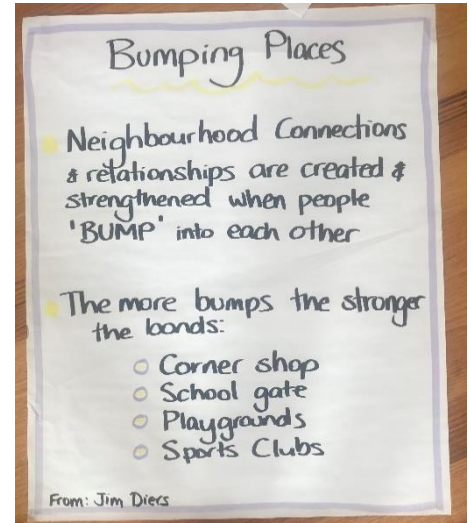 Bumping Places
Neighbourhood Connections
& relationships are created &
strengthened when people
'BUMP' into each other
The more bumps the stronger
the bonds:
Corner shop
School gate
Playgrounds
Sports Clubs
From: Jim Diers